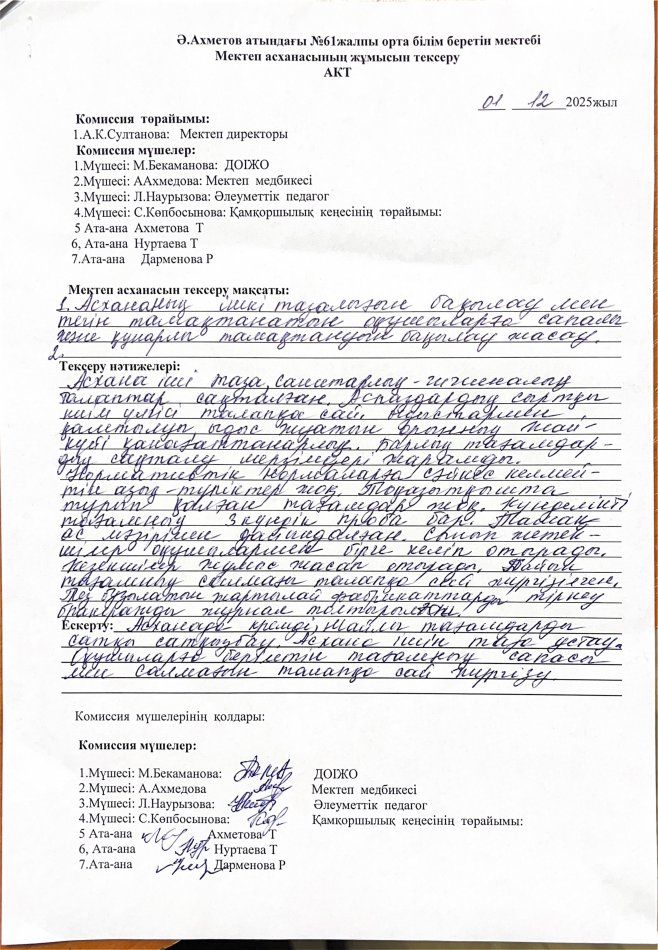 Ә.Ахметов атындағы №61жалпы орта білім беретін мектебі
Мектеп асханасының жұмысын тексеру
АКТ
01 12 2025жыл
Комиссия төрайымы:
1.А.К.Султанова: Мектеп директоры
Комиссия мүшелер:
1.Мүшесі: М.Бекаманова: ДОІЖО
2.Мүшесі: ААхмедова: Мектеп медбикесі
3.Мүшесі: Л.Наурызова: Әлеуметтік педагог
4.Мүшесі: С.Көпбосынова: Қамқоршылық кеңесінің төрайымы:
5 Ата-ана Ахметова Т
6, Ата-ана Нуртаева Т
7.Ата-ана Дарменова Р
Мектеп асханасын тексеру мақсаты:
1. Асхананың ішкі тазалығын бақылау мен
тегін тамақтанатын оқушыларға сапалы
және құнарлы тамақтануын бақылау жасау.
2.
Тексеру нәтижелері:
Асхана іші таза, санитарлық-гигиеналық
талаптар сақталған. Аспаздардың сыртқы
киім үлгісі талапқа сай. Ыдыстармен
қамтылуы ыдыс жуатын орынның жай-
күйі қанағаттанарлық. Барлық тағамдар-
дың сақталу мерзімдері жарамды.
Нормативтік нормаларға сәйкес келмей-
тін азық-түліктер жоқ. Тоңазытқышта
тұрып қалған тағамдар жоқ. Күнделікті
тағамның 3 күндік проба бар. Тамақ
ас мәзірімен дайындалған. Сынып жетек-
шілер оқушылармен бірге келіп отырады.
Кезекшілер жұмыс жасап отырады. Дайын
тағамның салмағы талапқа сай жүргізілген.
Тез бұзылатын жартылай фабрикаттарды тіркеу
бракераждық журнал толтырылған.
Ескерту: Асханада кремді, майлы тағамдарды
сатқа сатқызбау. Асхана ішін таза ұстау.
Оқушыларға берілетін тағамның сапасы
мен салмағын талапқа сай жүргізу
Комиссия мүшелерінің қолдары:
Комиссия мүшелер:
1.Мүшесі: М.Бекаманова: ДОІЖО
2.Мүшесі: А.Ахмедова Мектеп медбикесі
3.Мүшесі: Л.Наурызова: Әлеуметтік педагог
4.Мүшесі: С.Көпбосынова: Қамқоршылық кеңесінің төрайымы:
5 Ата-ана Ахметова Т
6, Ата-ана Нуртаева Т
7.Ата-ана Дарменова Р